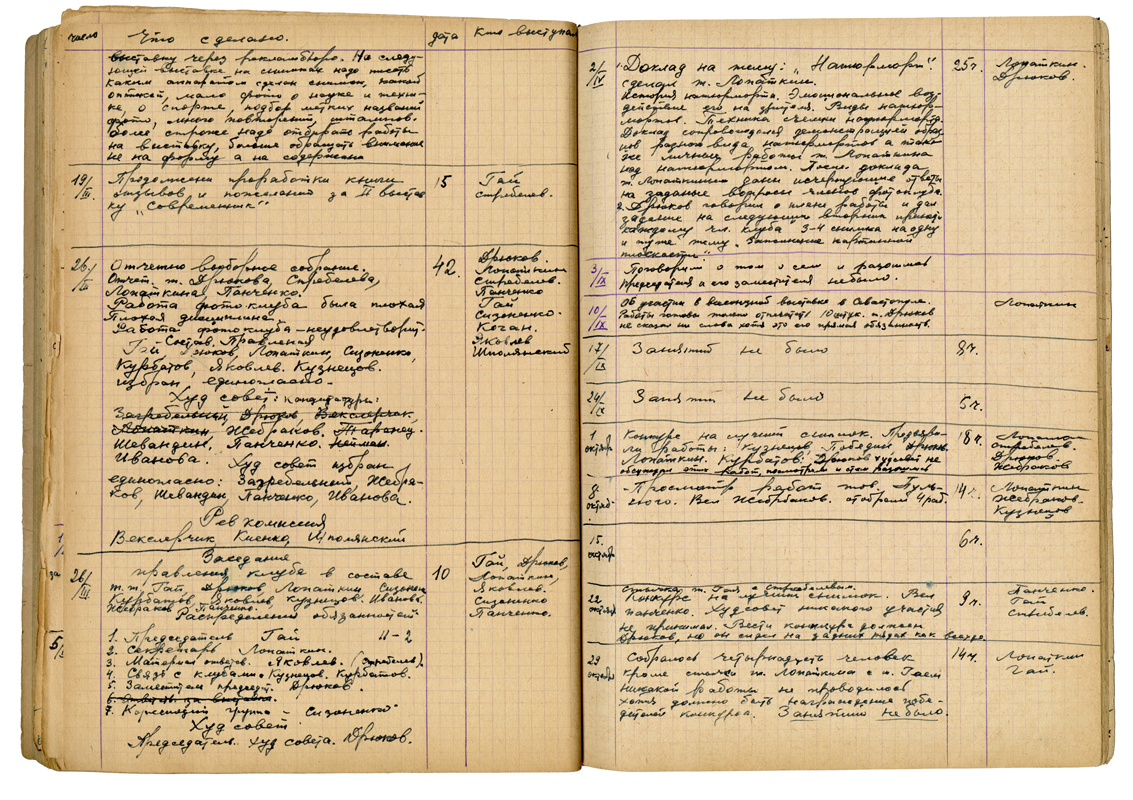 число Что сделано. дата Кто выступал
выставку через рекламбюро. На следу-
ющей выставке на снимках надо писать
каким аппаратом сделан снимок, какой
оптикой, мало фото о науке и техни-
ке, о спорте, подбор метких названий
фото, много повторений, штампов.
более строже надо отбирать работы
на выставку, больше обращать внимание
не на форму а на содержание
19/III Продолжени проработки книги 15 Гай
отзывов и пожеланий за II выстав Стребелев.
ку "Современник"
26/III Отчетно выборное собрание. 42. Дрюков.
Отчет. т. Дрюкова, Стребелева, Лопаткин
Лопаткина, Панченко. Стребелев.
Работа фотоклуба была плохая Панченко
Плохая дисциплина. Гай
Работа фотоклуба – неудовлетворит. Сизоненко.
Состав. Правления Коган.
Гай, Дрюков, Лопаткин, Сизоненко, Яковлев
Курбатов, Яковлев. Кузнецов. Шполянский
избран, единогласно-
Худ совет: кандидатуры:
Загребельный, Дрюков Векслерчик,
Лопаткин Жебраков. Таранец.
Шевандин, Панченко. Нейман.
Иванова. Худ совет избран
единогласно: Загребельный, Жебра-
ков, Шевандин, Панченко, Иванова.
Рев комиссия
Векслерчик Киенко, Шполянский
26/III Заседание 10 Гай, Дрюков,
правления клуба в составе Лопаткин,
т.т. Гай Дрюков Лопаткин Сизонен Яковлев.
Курбатов, Яковлев, Кузнецов. Иванов. Сизоненко
Жебраков Панченко. Панченко.
Распределили обязанностей
1. Председатель Гай 11-2
2. Секретарь Лопаткин.
3. Материал ответсв. Яковлев. (Стребелев).
4. Связь с клубами. Кузнецов. Курбатов.
5. Заместител председт. Дрюков.
6. Ответств за выставки.
7. группа – Сизоненко
Худ совет
Председатель. худ совета. Дрюков.
2/IV 1. Доклад на тему: "Натюрморт" 25ч. Лопаткин.
сделал т. Лопаткин. Дрюков.
История натюрморта. Эмоциональное воз-
действие его на зрителя. Виды натюр-
мортов. Техника съемки натюрморта.
Доклад сопровождался демонстрацией образ
цов разного вида натюрмортов а так
же личных работ т. Лопаткина
над натюрмортом. После доклада
т. Лопаткиным даны исчерпующие ответы
на заданые вопросы членов фотоклуба.
2. Дрюков говорил о плане работы и дал
задание на следующий вторник принест
каждому чл. клуба 3-4 снимка на одну
и ту же тему. Заполнение картинной
плоскости.
3/IX Поговорили о том о сем и разошлись
председателя и его заместителя небыло.
10/IX Об участии в выставке в Севастополе. Лопаткин
Работы готовы только отпечатать 10 штук. т. Дрюков
не сказал ни слова хотя это его прямая обязанность.
17/IX Занятий не было 8ч.
24/IX Занятий не было 5ч.
1 октября Конкурс на лучший снимок. 18ч. Лопаткин
ли работы: Кузнецов, Дрюков. Стребелев.
Лопаткин. Курбатов. Дрюков худсовет не Дрюков
обсуждал этих работ, посмотрели и стали разошлись Жебраков
8 октяб. Просмотр работ тов. Пуль- 14ч. Лопаткин
ного. Вел Жебраков. отобрали 4 раб. Жебраков-
Кузнецов
15. октября 6ч.
стычка т. Гая с Стребелевым.
22 октября Конкурс на лучший снимок. Вел 9ч. Панченко.
панченко. Худсовет никакого участия Гай
не принимал. Вести конкурс должен Стребелев.
Дрюков, но он сидел на задних рядах как всегда.
29 октября Собралось четырнадцать человек 14ч. Лопаткин
кроме стычки т. Лопаткина с т. Гаем Гай.
никакой работы не проводилось
хотя должно быть награждение побе-
дителей конкурса. Занятий не было.
5/
за